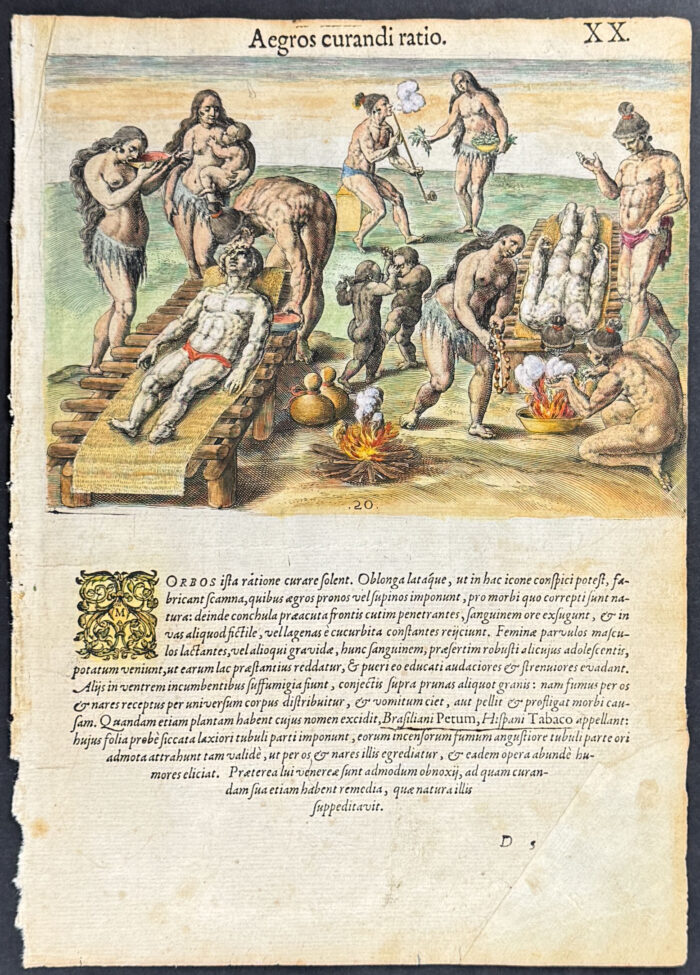 Aegros curandi ratio.
XX.
.20.
MORBOS iſta ratione curare ſolent. Oblonga lataq́ue, ut in hac icone conſpici poteſt, fa-
bricant ſcamna, quibus ægros pronos vel ſupinos imponunt, pro morbi quo correpti ſunt na-
tura: deinde conchula præacuta frontis cutim penetrantes, ſanguinem ore exſugunt, & in
vas aliquod fictile, vel lagenas è cucurbita conſtantes reijciunt. Feminæ parvulos maſcu-
los lactantes, vel alioqui gravidæ, hunc ſanguinem, præſertim robuſti alicujus adoleſcentis,
potatum veniunt, ut earum lac præſtantius reddatur, & pueri eo educati audaciores & ſtrenuiores evadant.
Alijs in ventrem incumbentibus ſuffumigia fiunt, conjectis ſupra prunas aliquot granis: nam fumus per os
& nares receptus per univerſum corpus diſtribuitur, & vomitum ciet, aut pellit & profligat morbi cau-
ſam. Quandam etiam plantam habent cujus nomen excidit, Braſiliani Petum, Hiſpani Tabaco appellant:
hujus folia probè ſiccata laxiori tubuli parti imponunt, eorum incenſorum fumum anguſtiore tubuli parte ori
admota attrahunt tam validè, ut per os & nares illis egrediatur, & eadem opera abundè hu-
mores eliciat. Præterea lui venereæ ſunt admodum obnoxij, ad quam curan-
dam ſua etiam habent remedia, quæ natura illis
ſuppeditavit.
D 5